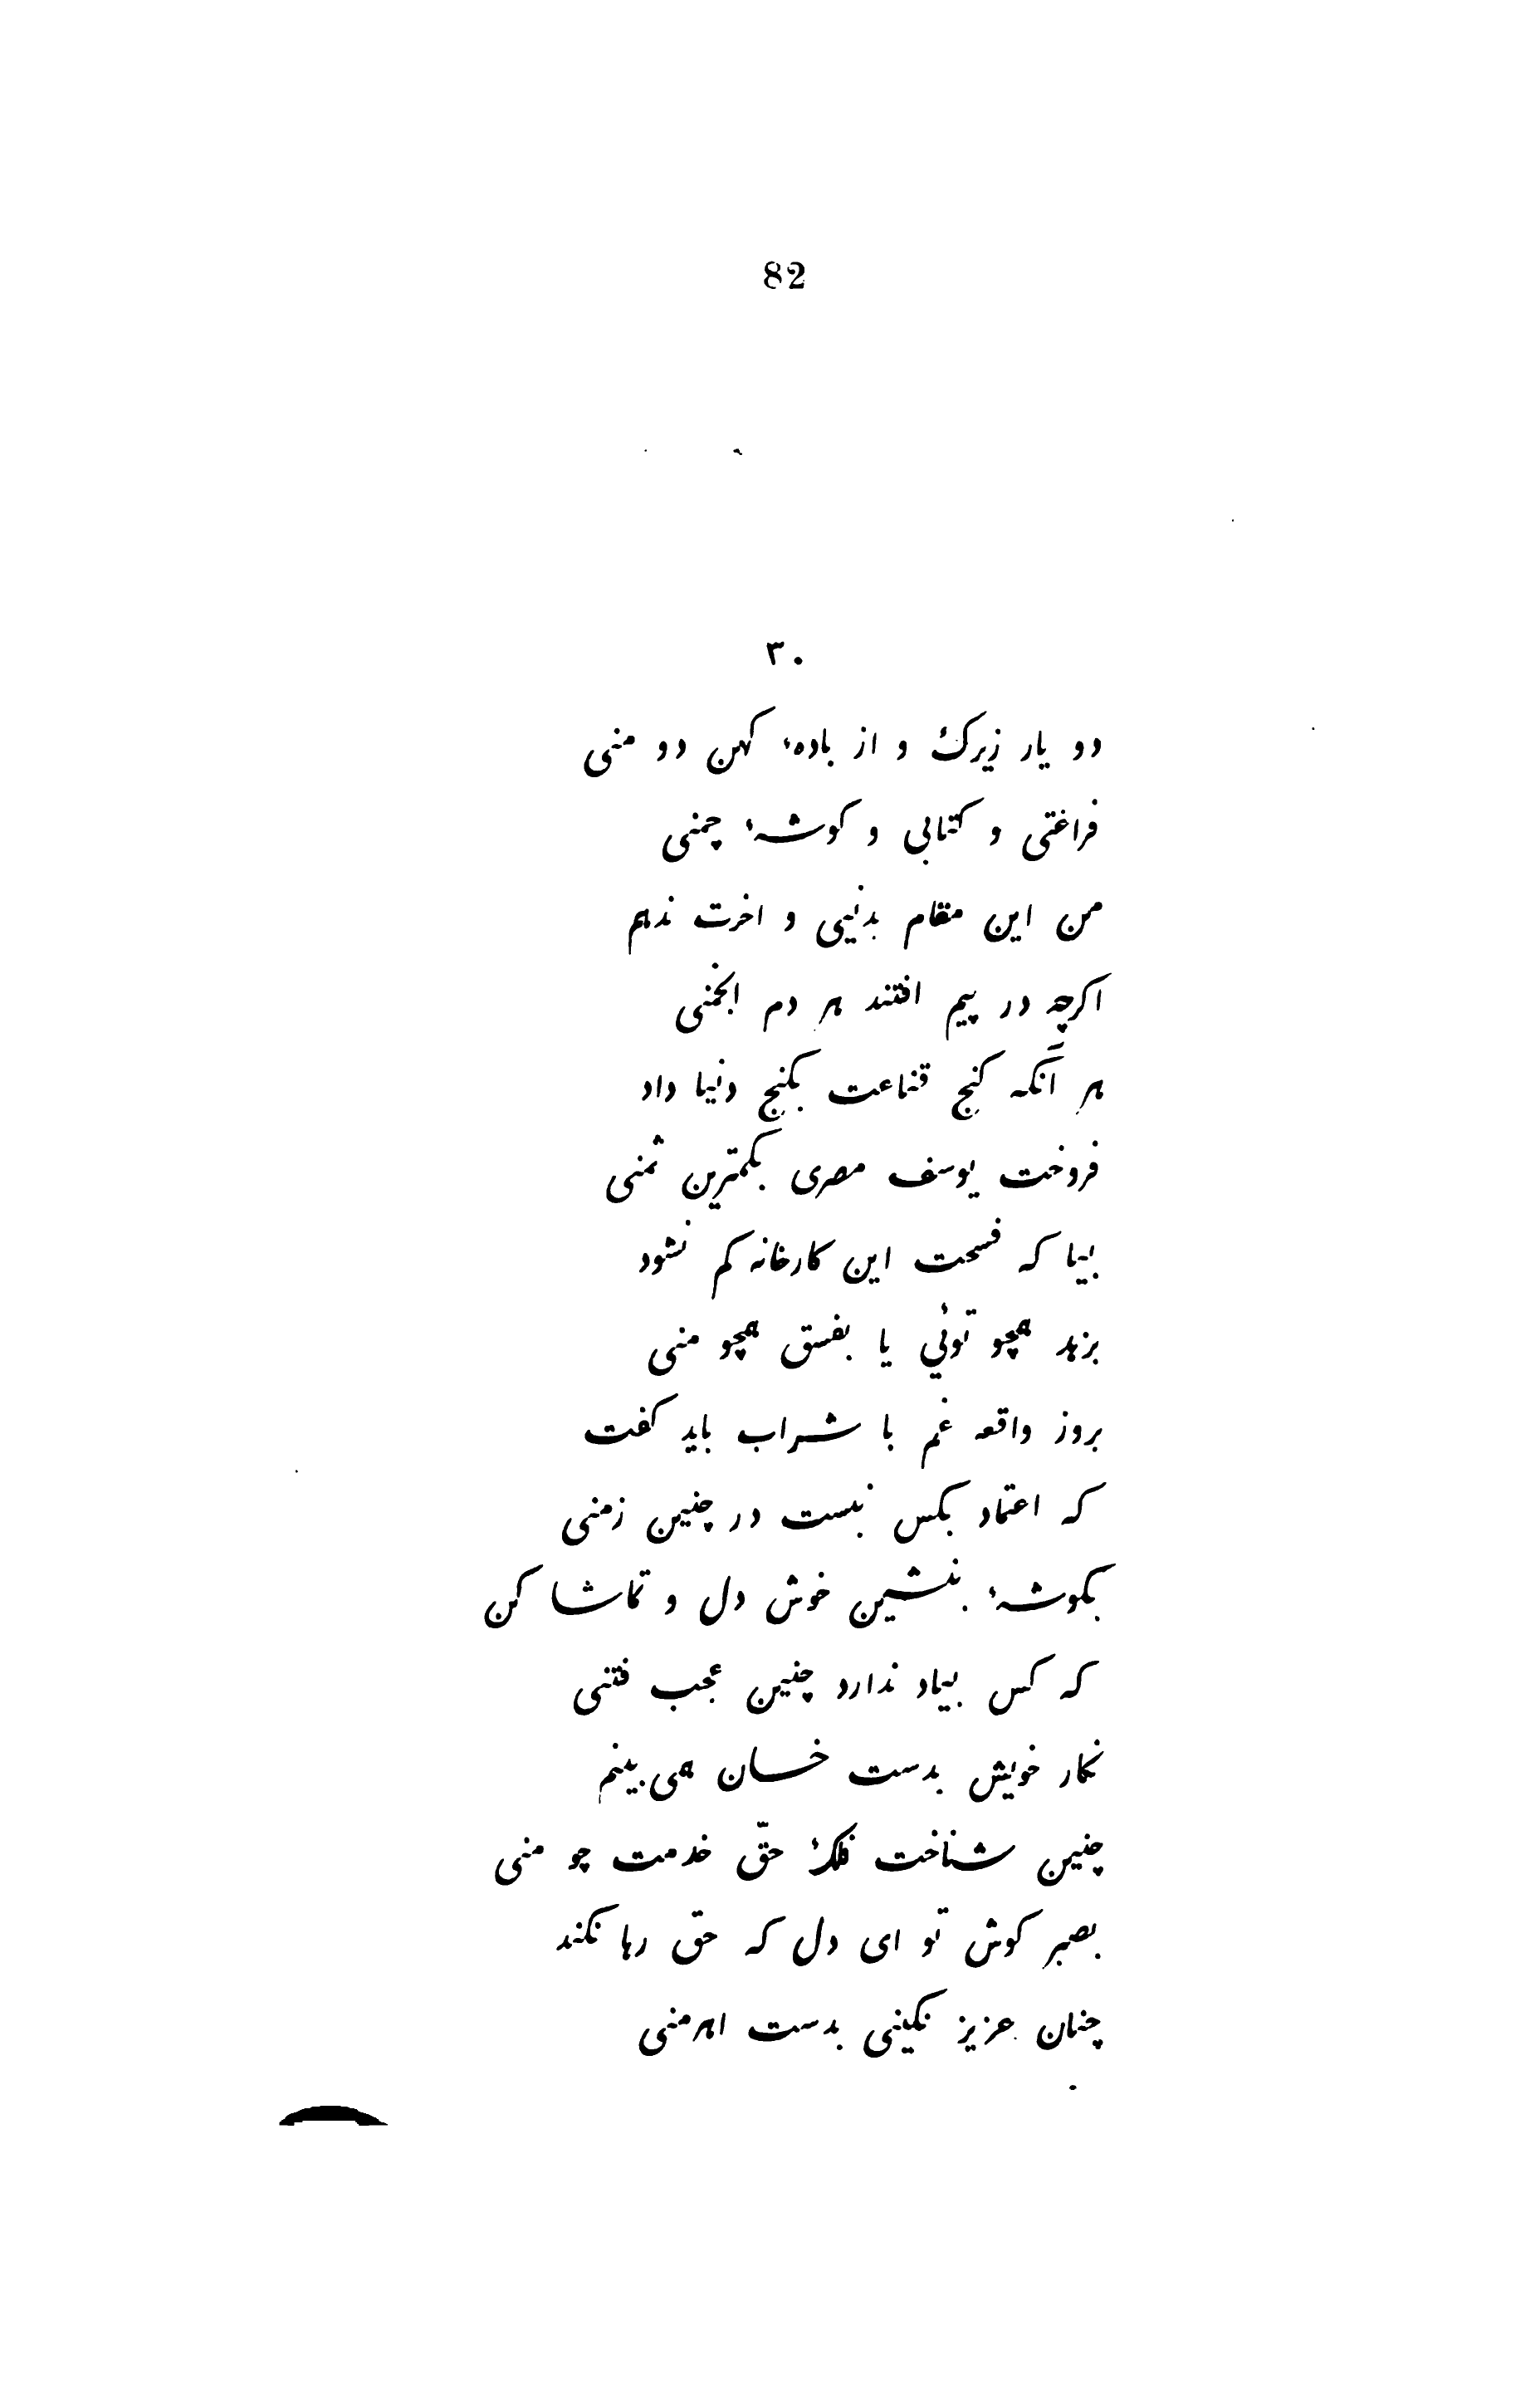 82
٣٠
دو یار زیرک و از بادهٔ کهن دو منی
فراغتی و کتابی و کوشهٔ چمنی
من این مقام بدنیی و اخرت ندهم
اکرچه در پیم افتند هر دم انجمنی
هر آنکه کنج قناعت بکنج دنیا داد
فروخت یوسف مصری بکمترین ثمنی
بیا که فسحت این کارخانه کم نشود
بزهد همچو توئي یا بفسق همچو منی
بروز واقعه غم با شراب باید کفت
که اعتماد بکس نیست در چنین زمنی
بکوشهٔ بنشین خوش دل و تماشا کن
که کس بیاد ندارد چنین عجب فتنی
نکار خویش بدست خسان همی بینم
چنین شناخت فلک حقّ خدمت چو منی
بصبر کوش تو ای دل که حق رها نکند
چنان عزیز نکینی بدست اهرمنی